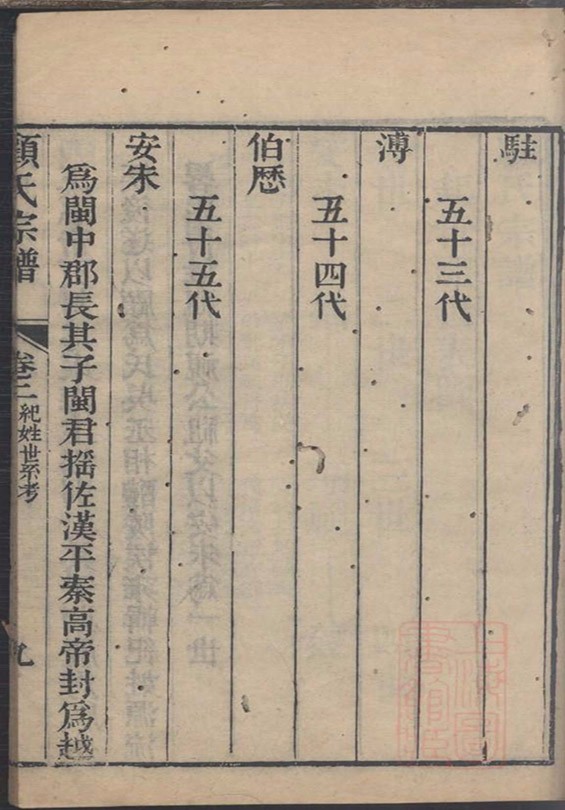 駐
五十三代
溥
五十四代
伯歷
五十五代
安朱
為閩中郡長其子閩君搖佐漢平秦高帝封為越
顧氏宗譜
卷二
紀姓世系考
九